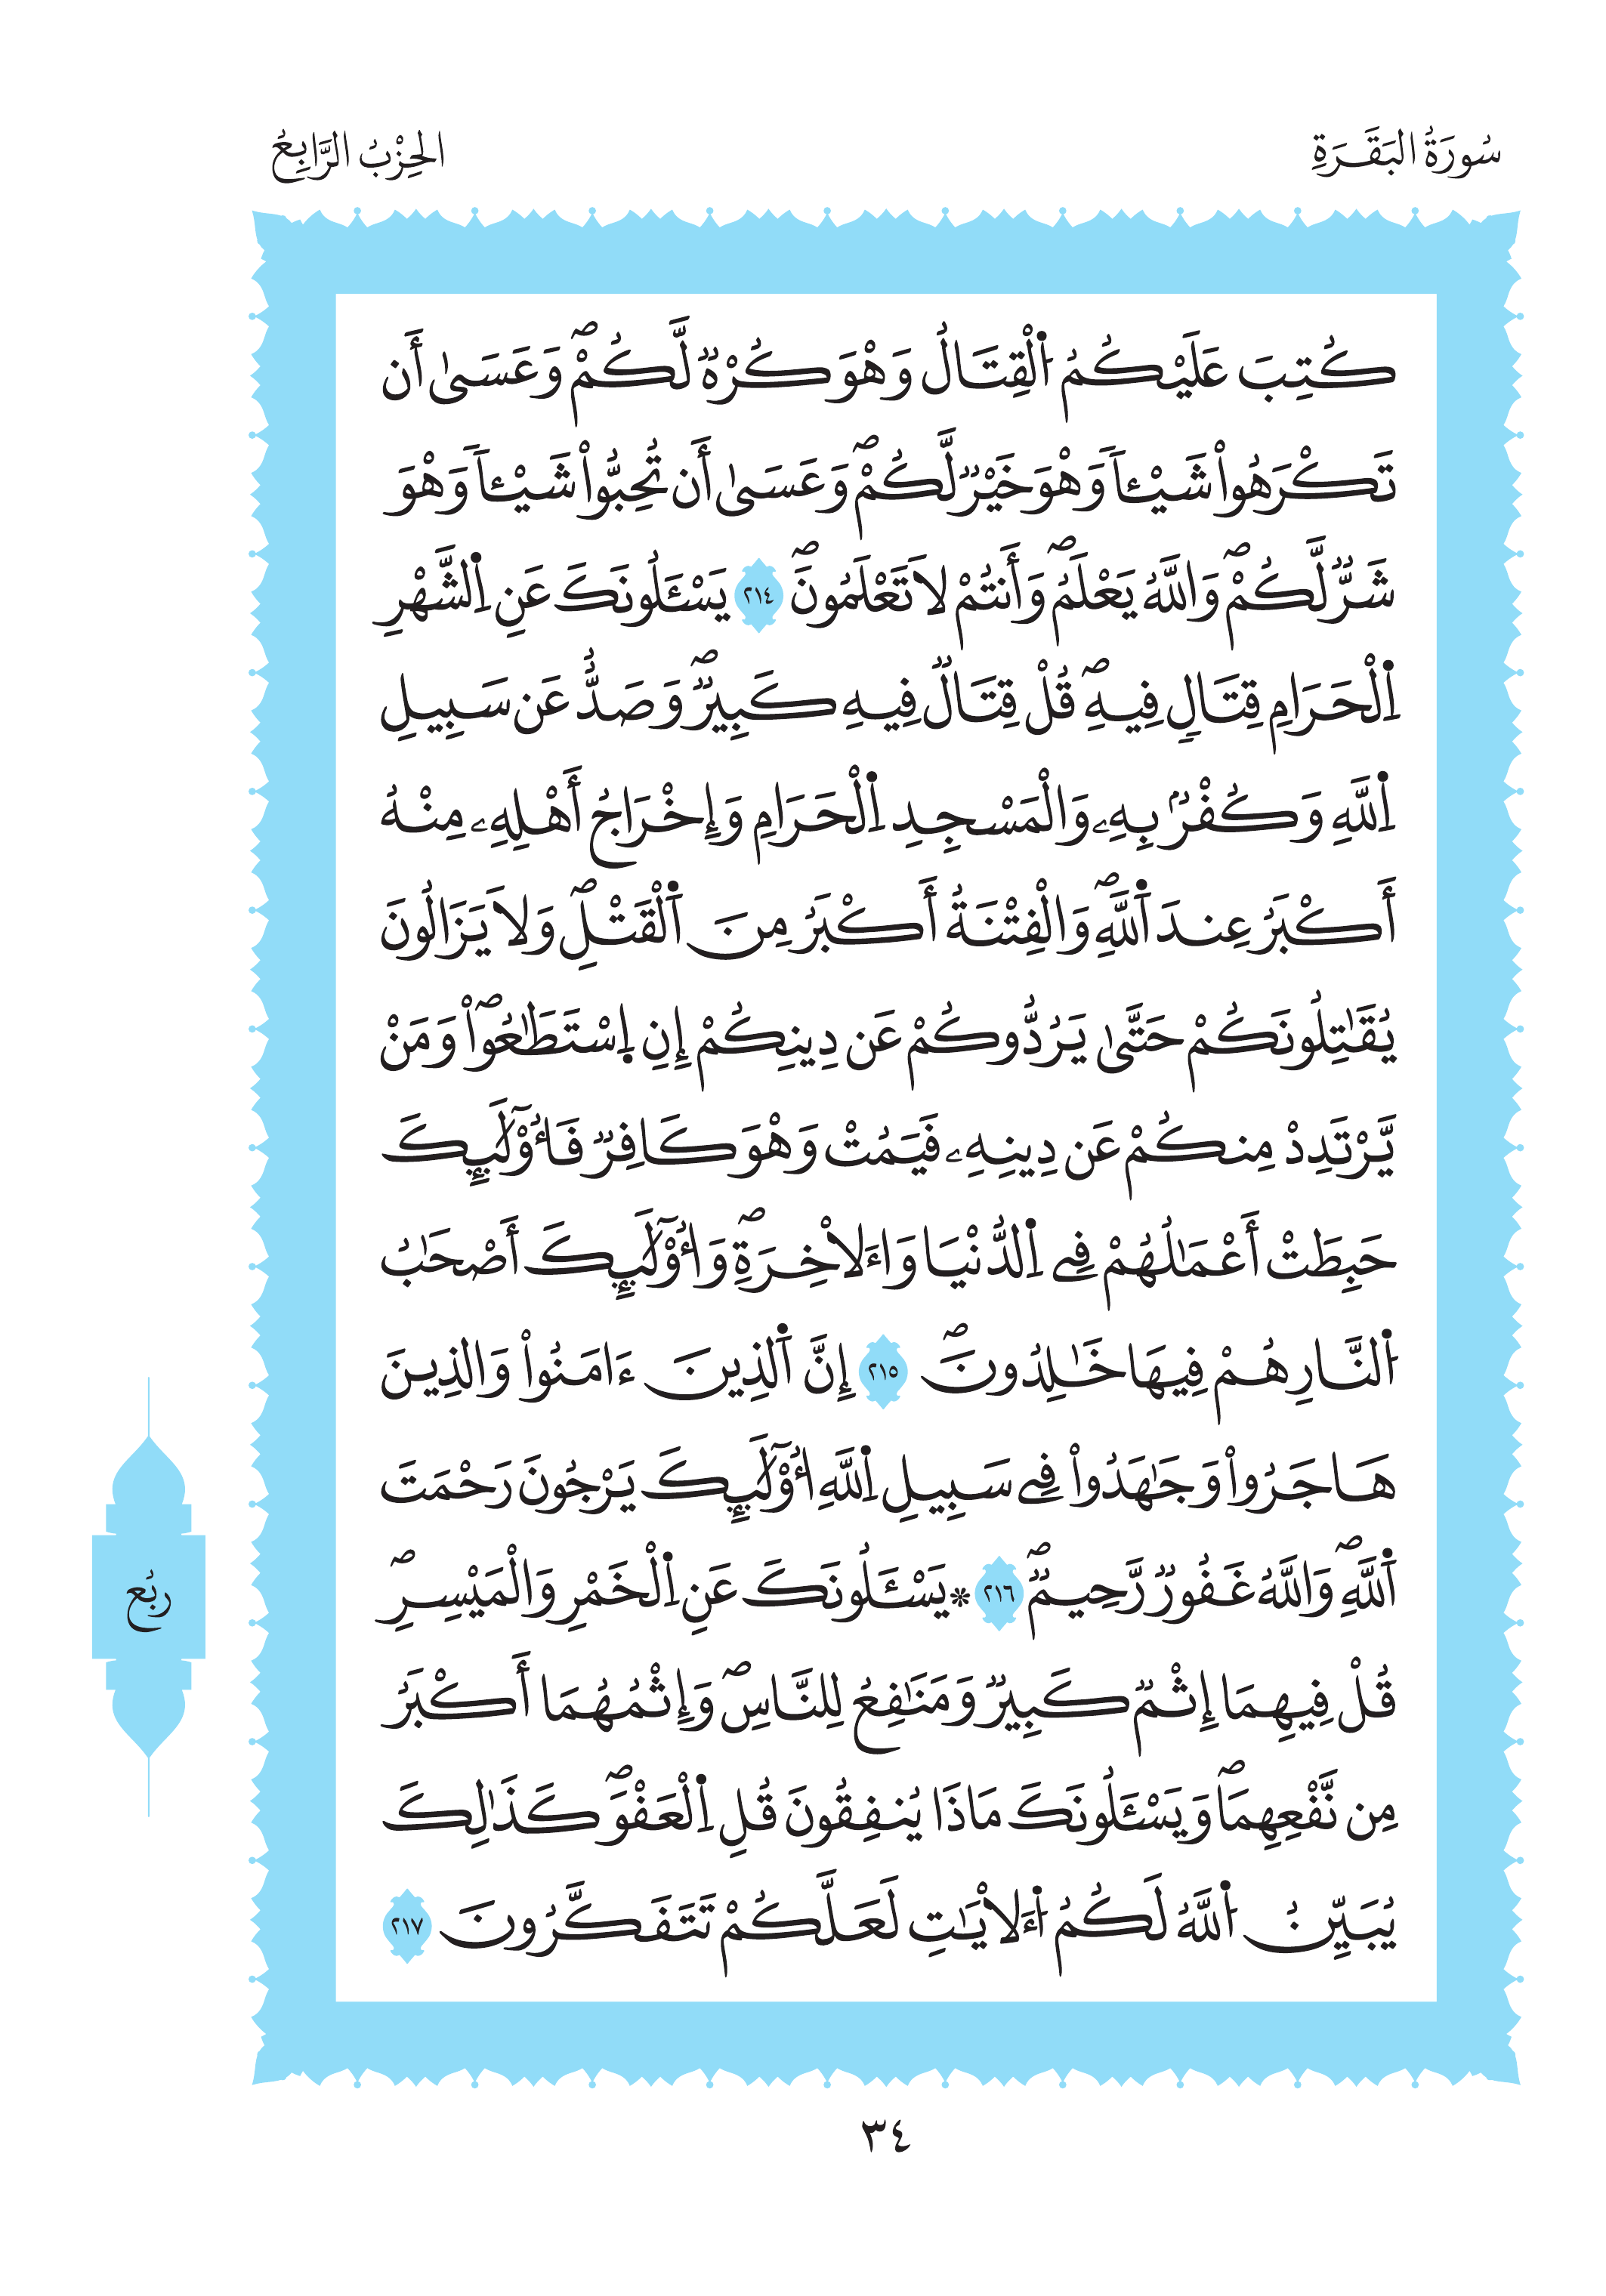 سُورَةُ البَقَرَةِ
الحِزْبُ الرَّابِعُ
كُتِبَ عَلَيْكُمُ اُ۬لْقِتَالُ وَهْوَ كُرْهٞ لَّكُمْۖ وَعَسَىٰ أَن
تَكْرَهُواْ شَيْـٔاٗ وَهْوَ خَيْرٞ لَّكُمْۖ وَعَسَىٰ أَن تُحِبُّواْ شَيْـٔاٗ وَهْوَ
شَرّٞ لَّكُمْۖ وَاللَّهُ يَعْلَمُۖ وَأَنتُمْ لَا تَعْلَمُونَۖ ٢١٤ يَسْـَٔلُونَكَ عَنِ اِ۬لشَّهْرِ
اِ۬لْحَرَامِ قِتَالٖ فِيهِۖ قُلْ قِتَالٞ فِيهِ كَبِيرٞۖ وَصَدٌّ عَن سَبِيلِ
اِ۬للَّهِ وَكُفْرُۢ بِهِۦ وَالْمَسْجِدِ اِ۬لْحَرَامِ وَإِخْرَاجُ أَهْلِهِۦ مِنْهُ
أَكْبَرُ عِندَ اَ۬للَّهِۖ وَالْفِتْنَةُ أَكْبَرُ مِنَ اَ۬لْقَتْلِۖ وَلَا يَزَالُونَ
يُقَٰتِلُونَكُمْ حَتَّىٰ يَرُدُّوكُمْ عَن دِينِكُمْ إِنِ اِ۪سْتَطَٰعُواْۖ وَمَنْ
يَّرْتَدِدْ مِنكُمْ عَن دِينِهِۦ فَيَمُتْ وَهْوَ كَافِرٞ فَأُوْلَٰٓئِكَ
حَبِطَتْ أَعْمَٰلُهُمْ فِے اِ۬لدُّنْيَا وَاءَلَاخِرَةِۖ وَأُوْلَٰٓئِكَ أَصْحَٰبُ
اُ۬لنَّارِ هُمْ فِيهَا خَٰلِدُونَۖ ٢١٥ إِنَّ اَ۬لذِينَ ءَامَنُواْ وَالذِينَ
هَاجَرُواْ وَجَٰهَدُواْ فِے سَبِيلِ اِ۬للَّهِ أُوْلَٰٓئِكَ يَرْجُونَ رَحْمَتَ
اَ۬للَّهِۖ وَاللَّهُ غَفُورٞ رَّحِيمٞۖ ٢١٦ *يَسْـَٔلُونَكَ عَنِ اِ۬لْخَمْرِ وَالْمَيْسِرِۖ
قُلْ فِيهِمَا إِثْمٞ كَبِيرٞ وَمَنَٰفِعُ لِلنَّاسِۖ وَإِثْمُهُمَا أَكْبَرُ
مِن نَّفْعِهِمَاۖ وَيَسْـَٔلُونَكَ مَاذَا يُنفِقُونَ قُلِ اِ۬لْعَفْوَۖ كَذَٰلِكَ
يُبَيِّنُ اُ۬للَّهُ لَكُمُ اُ۬ءَلَايَٰتِ لَعَلَّكُمْ تَتَفَكَّرُونَ ٢١٧
رُبُع
٣٤